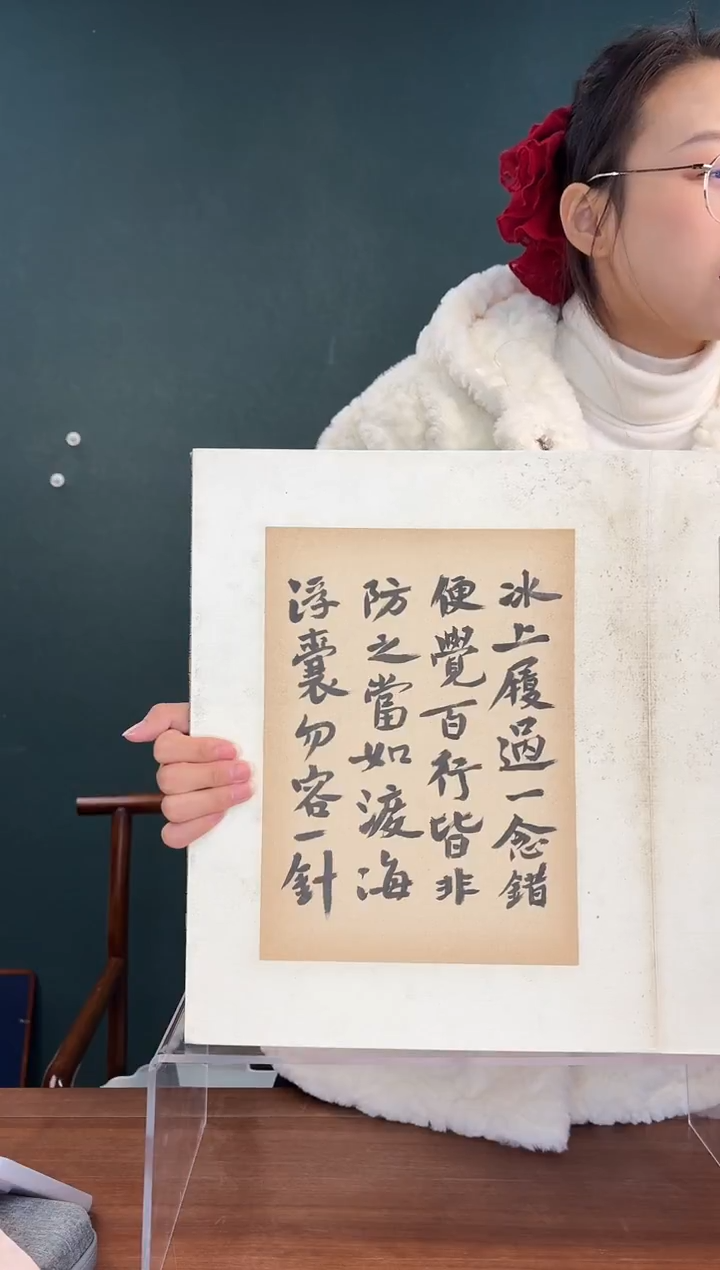 冰上履過一念錯
便覺百行皆非
防之當如渡海
浮囊勿容一針